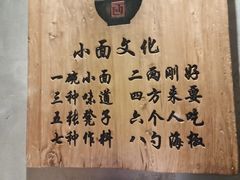 小面文化
一碗小面 二两刚好
三种味道 四方来耍
五张凳子 六个人吃
七种作料 八勺海椒